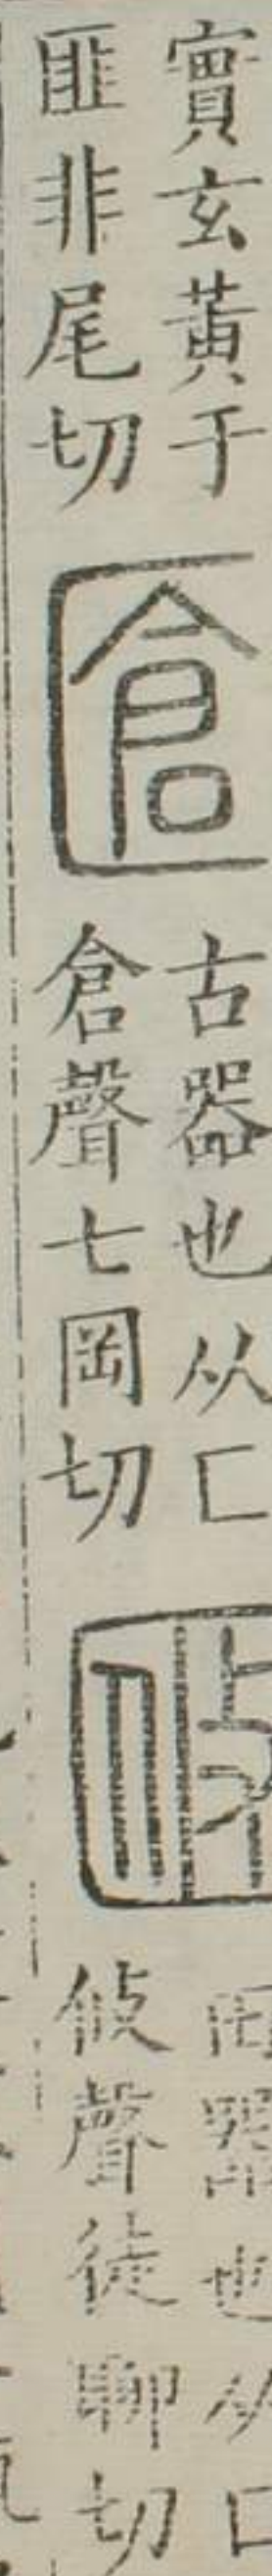 實玄黃于
匪非尾切
㔶
古器也从匚
倉聲七岡切
𠥑
田器也从匚
攸聲徒聊切